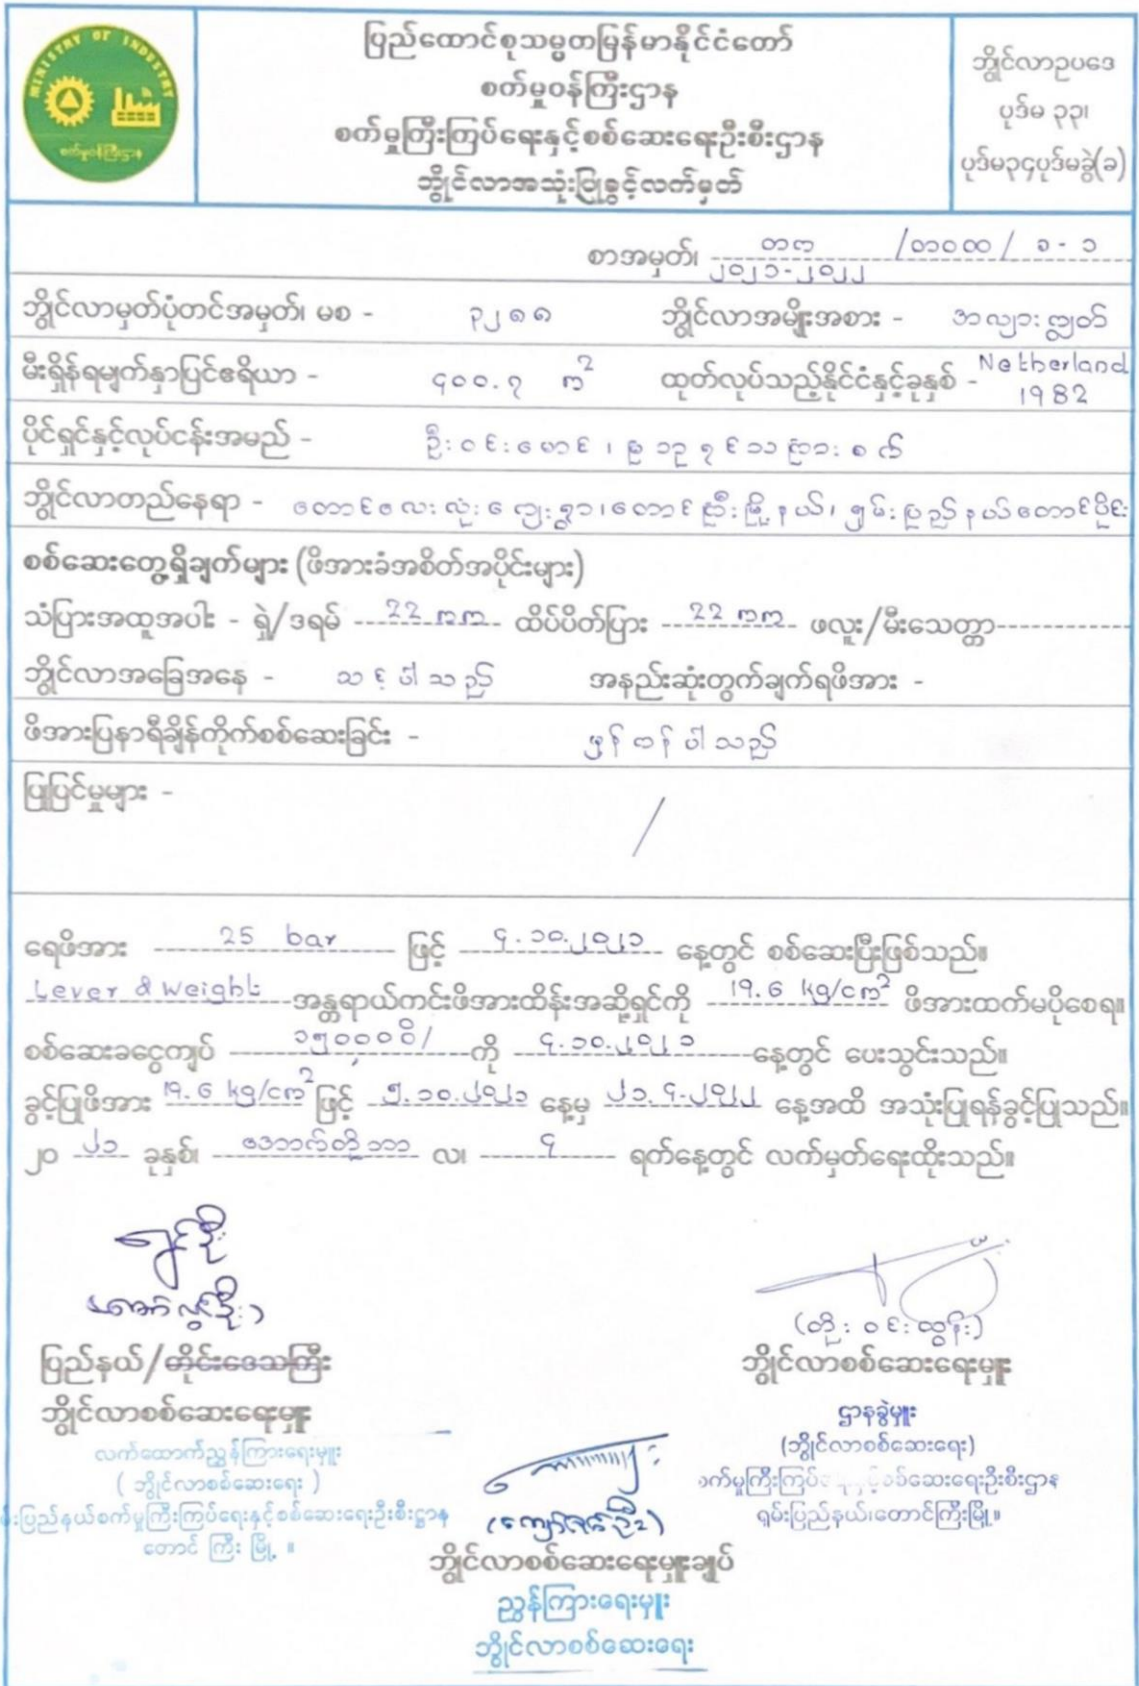 MINISTRY OF INDUSTRY
စက်မှုဝန်ကြီးဌာန
ပြည်ထောင်စုသမ္မတမြန်မာနိုင်ငံတော်
စက်မှုဝန်ကြီးဌာန
စက်မှုကြီးကြပ်ရေးနှင့်စစ်ဆေးရေးဦးစီးဌာန
ဘွိုင်လာအသုံးပြုခွင့်လက်မှတ်
ဘွိုင်လာဥပဒေ
ပုဒ်မ ၃၃၊
ပုဒ်မ၃၄ပုဒ်မခွဲ(ခ)
စာအမှတ်၊
၂၀၂၁-၂၀၂၂
ဘွိုင်လာမှတ်ပုံတင်အမှတ်၊ မစ - ၃၂၈၈ ဘွိုင်လာအမျိုးအစား - အလျားကျွတ်
မီးရှိန်ရမျက်နှာပြင်ဧရိယာ - ၄၀၀.၇ m² ထုတ်လုပ်သည့်နိုင်ငံနှင့်ခုနှစ် - Netherland
1982
ပိုင်ရှင်နှင့်လုပ်ငန်းအမည် - ဦးဝင်းမောင်၊
ဘွိုင်လာတည်နေရာ - တောင်လေးလုံးကျေးရွာ၊တောင်ကြီးမြို့နယ်၊ ရှမ်းပြည်နယ်တောင်ပိုင်း
စစ်ဆေးတွေ့ရှိချက်များ (ဖိအားခံအစိတ်အပိုင်းများ)
သံပြားအထူအပါး - ရှဲ/ဒရမ် 22 mm ထိပ်ပိတ်ပြား 22 mm ဖလူး/မီးသေတ္တာ
ဘွိုင်လာအခြေအနေ - သင့်ပါသည် အနည်းဆုံးတွက်ချက်ရဖိအား -
ဖိအားပြနာရီချိန်ကိုက်စစ်ဆေးခြင်း - မှန်ကန်ပါသည်
ပြုပြင်မှုများ -
/
ရေဖိအား 25 bar ဖြင့် ၄.၁၀.၂၀၂၁ နေ့တွင် စစ်ဆေးပြီးဖြစ်သည်။
Lever & Weight အန္တရာယ်ကင်းဖိအားထိန်းအဆို့ရှင်ကို 19.6 kg/cm² ဖိအားထက်မပိုစေရ။
စစ်ဆေးခငွေကျပ် ၁၅၀,၀၀၀ိ/ ကို ၄.၁၀.၂၀၂၁ နေ့တွင် ပေးသွင်းသည်။
ခွင့်ပြုဖိအား 19.6 kg/cm² ဖြင့် ၅.၁၀.၂၀၂၁ နေ့မှ ၂၁.၄.၂၀၂၂ နေ့အထိ အသုံးပြုရန်ခွင့်ပြုသည်။
၂၀ ၂၁ ခုနှစ်၊ အောက်တိုဘာ လ၊ ၄ ရက်နေ့တွင် လက်မှတ်ရေးထိုးသည်။
(တိုးဝင်းထွန်း)
ပြည်နယ်/တိုင်းဒေသကြီး
ဘွိုင်လာစစ်ဆေးရေးမှူး
ဘွိုင်လာစစ်ဆေးရေးမှူး
လက်ထောက်ညွှန်ကြားရေးမှူး
( ဘွိုင်လာစစ်ဆေးရေး )
ပြည်နယ်စက်မှုကြီးကြပ်ရေးနှင့်စစ်ဆေးရေးဦးစီးဌာန
တောင် ကြီး မြို့ ။
ဌာနခွဲမှူး
(ဘွိုင်လာစစ်ဆေးရေး)
စက်မှုကြီးကြပ်ရေးနှင့်စစ်ဆေးရေးဦးစီးဌာန
ရှမ်းပြည်နယ်၊တောင်ကြီးမြို့။
(ကျော်ဇင်ဦး)
ဘွိုင်လာစစ်ဆေးရေးမှူးချုပ်
ညွှန်ကြားရေးမှူး
ဘွိုင်လာစစ်ဆေးရေး